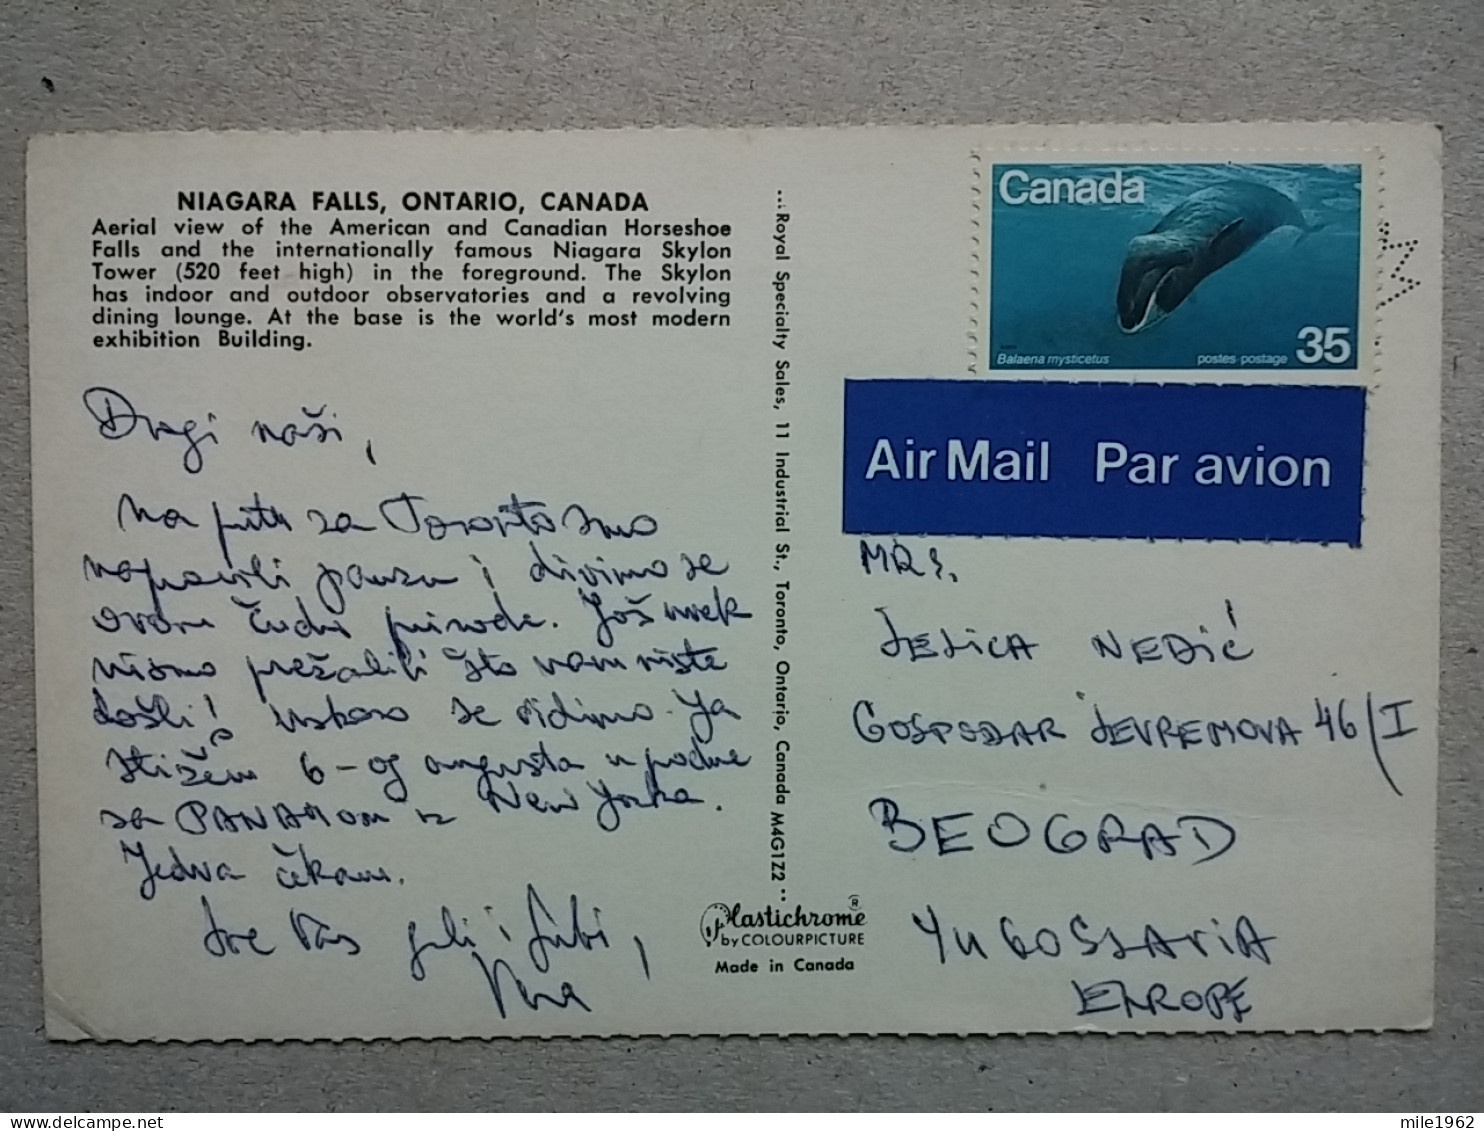 NIAGARA FALLS, ONTARIO, CANADA
Aerial view of the American and Canadian Horseshoe
Falls and the internationally famous Niagara Skylon
Tower (520 feet high) in the foreground. The Skylon
has indoor and outdoor observatories and a revolving
dining lounge. At the base is the world's most modern
exhibition Building.
Dragi naši,
Na putu za Toronto smo
napravili pauzu i divimo se
ovom čudu prirode. Još uvek
nismo prežalili što vam niste
došli! Uskoro se vidimo. Ja
stižem 6-og avgusta u podne
sa PANAMOM iz New Yorka.
Jedva čekam.
Sve Vas grli i ljubi,
...Royal Specialty Sales, 11 Industrial St., Toronto, Ontario, Canada M4G1Z2...
Plastichrome ®
by COLOURPICTURE
Made in Canada
Canada
Balaena mysticetus
postes-postage 35
Air Mail Par avion
MRS.
JELICA NEDIĆ
GOSPODAR JEVREMOVA 46/I
BEOGRAD
YUGOSLAVIA
EUROPE
mile1962